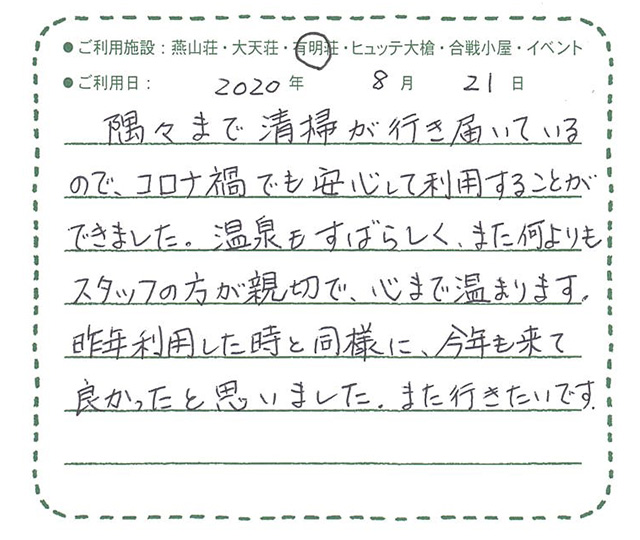 ●ご利用施設：燕山荘・大天荘・有明荘・ヒュッテ大槍・合戦小屋・イベント
●ご利用日： 2020 年 8 月 21 日
隅々まで清掃が行き届いている
ので、コロナ禍でも安心して利用することが
できました。温泉もすばらしく、また何よりも
スタッフの方が親切で、心まで温まります。
昨年利用した時と同様に、今年も来て
良かったと思いました。また行きたいです。